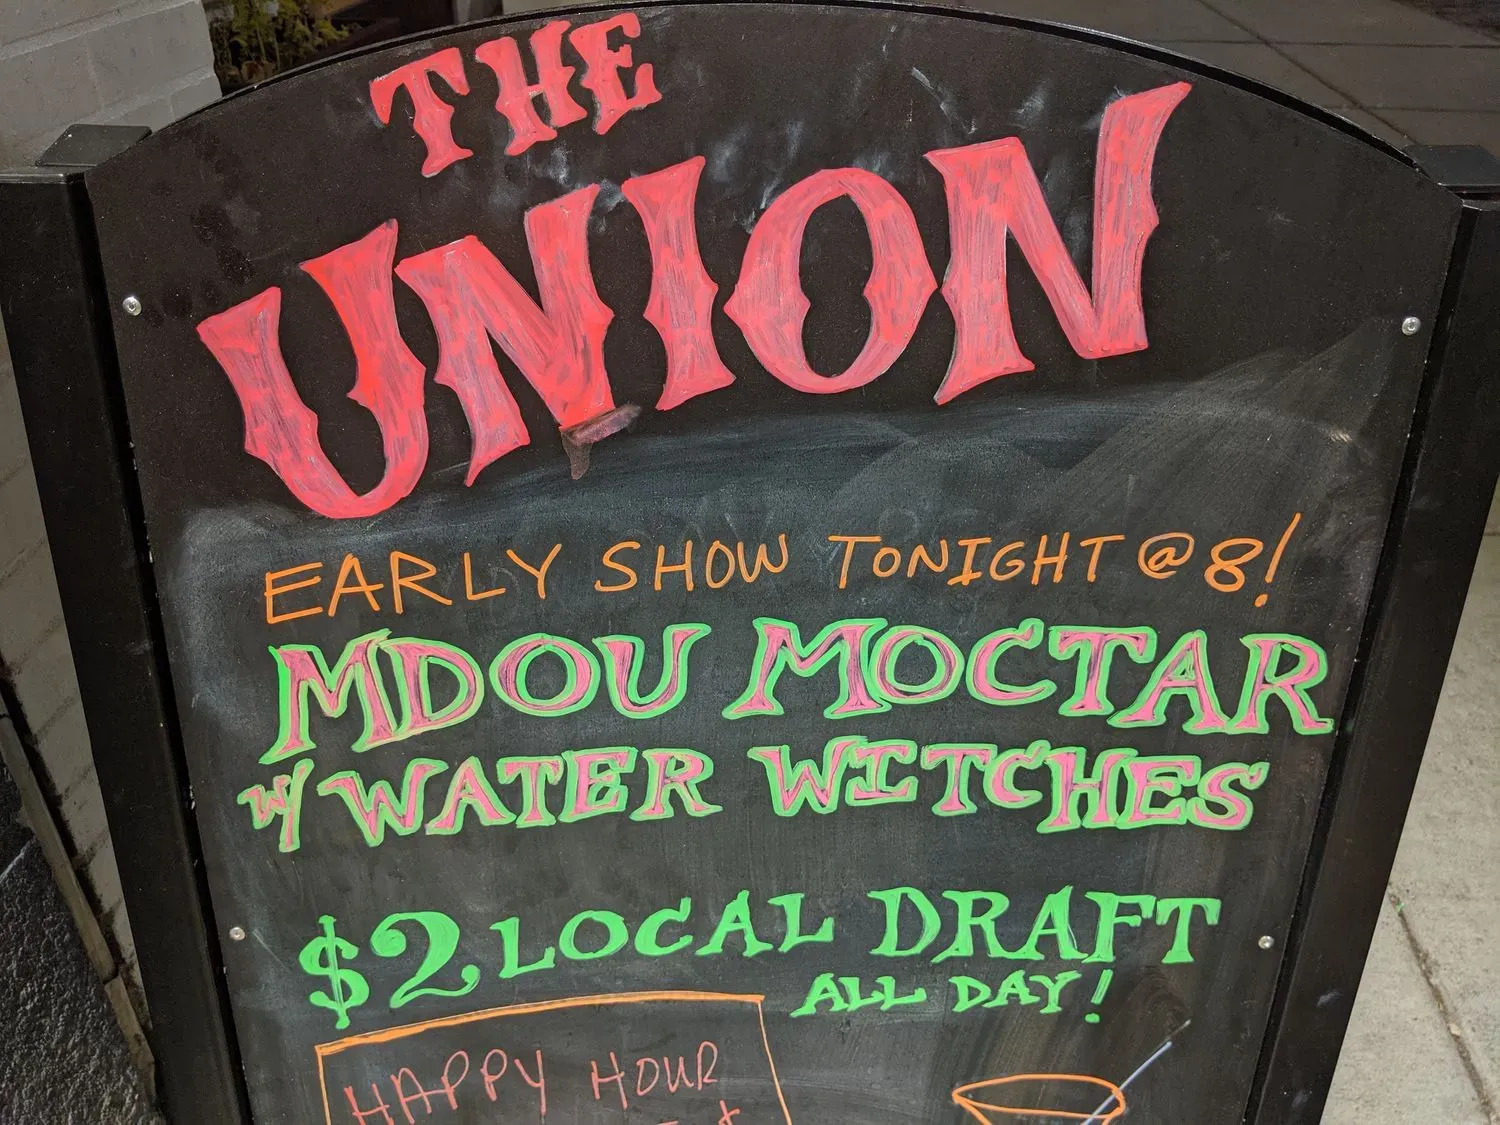 THE
UNION
EARLY SHOW TONIGHT @ 8!
MDOU MOCTAR
W/ WATER WITCHES
$2 LOCAL DRAFT
ALL DAY!
HAPPY HOUR